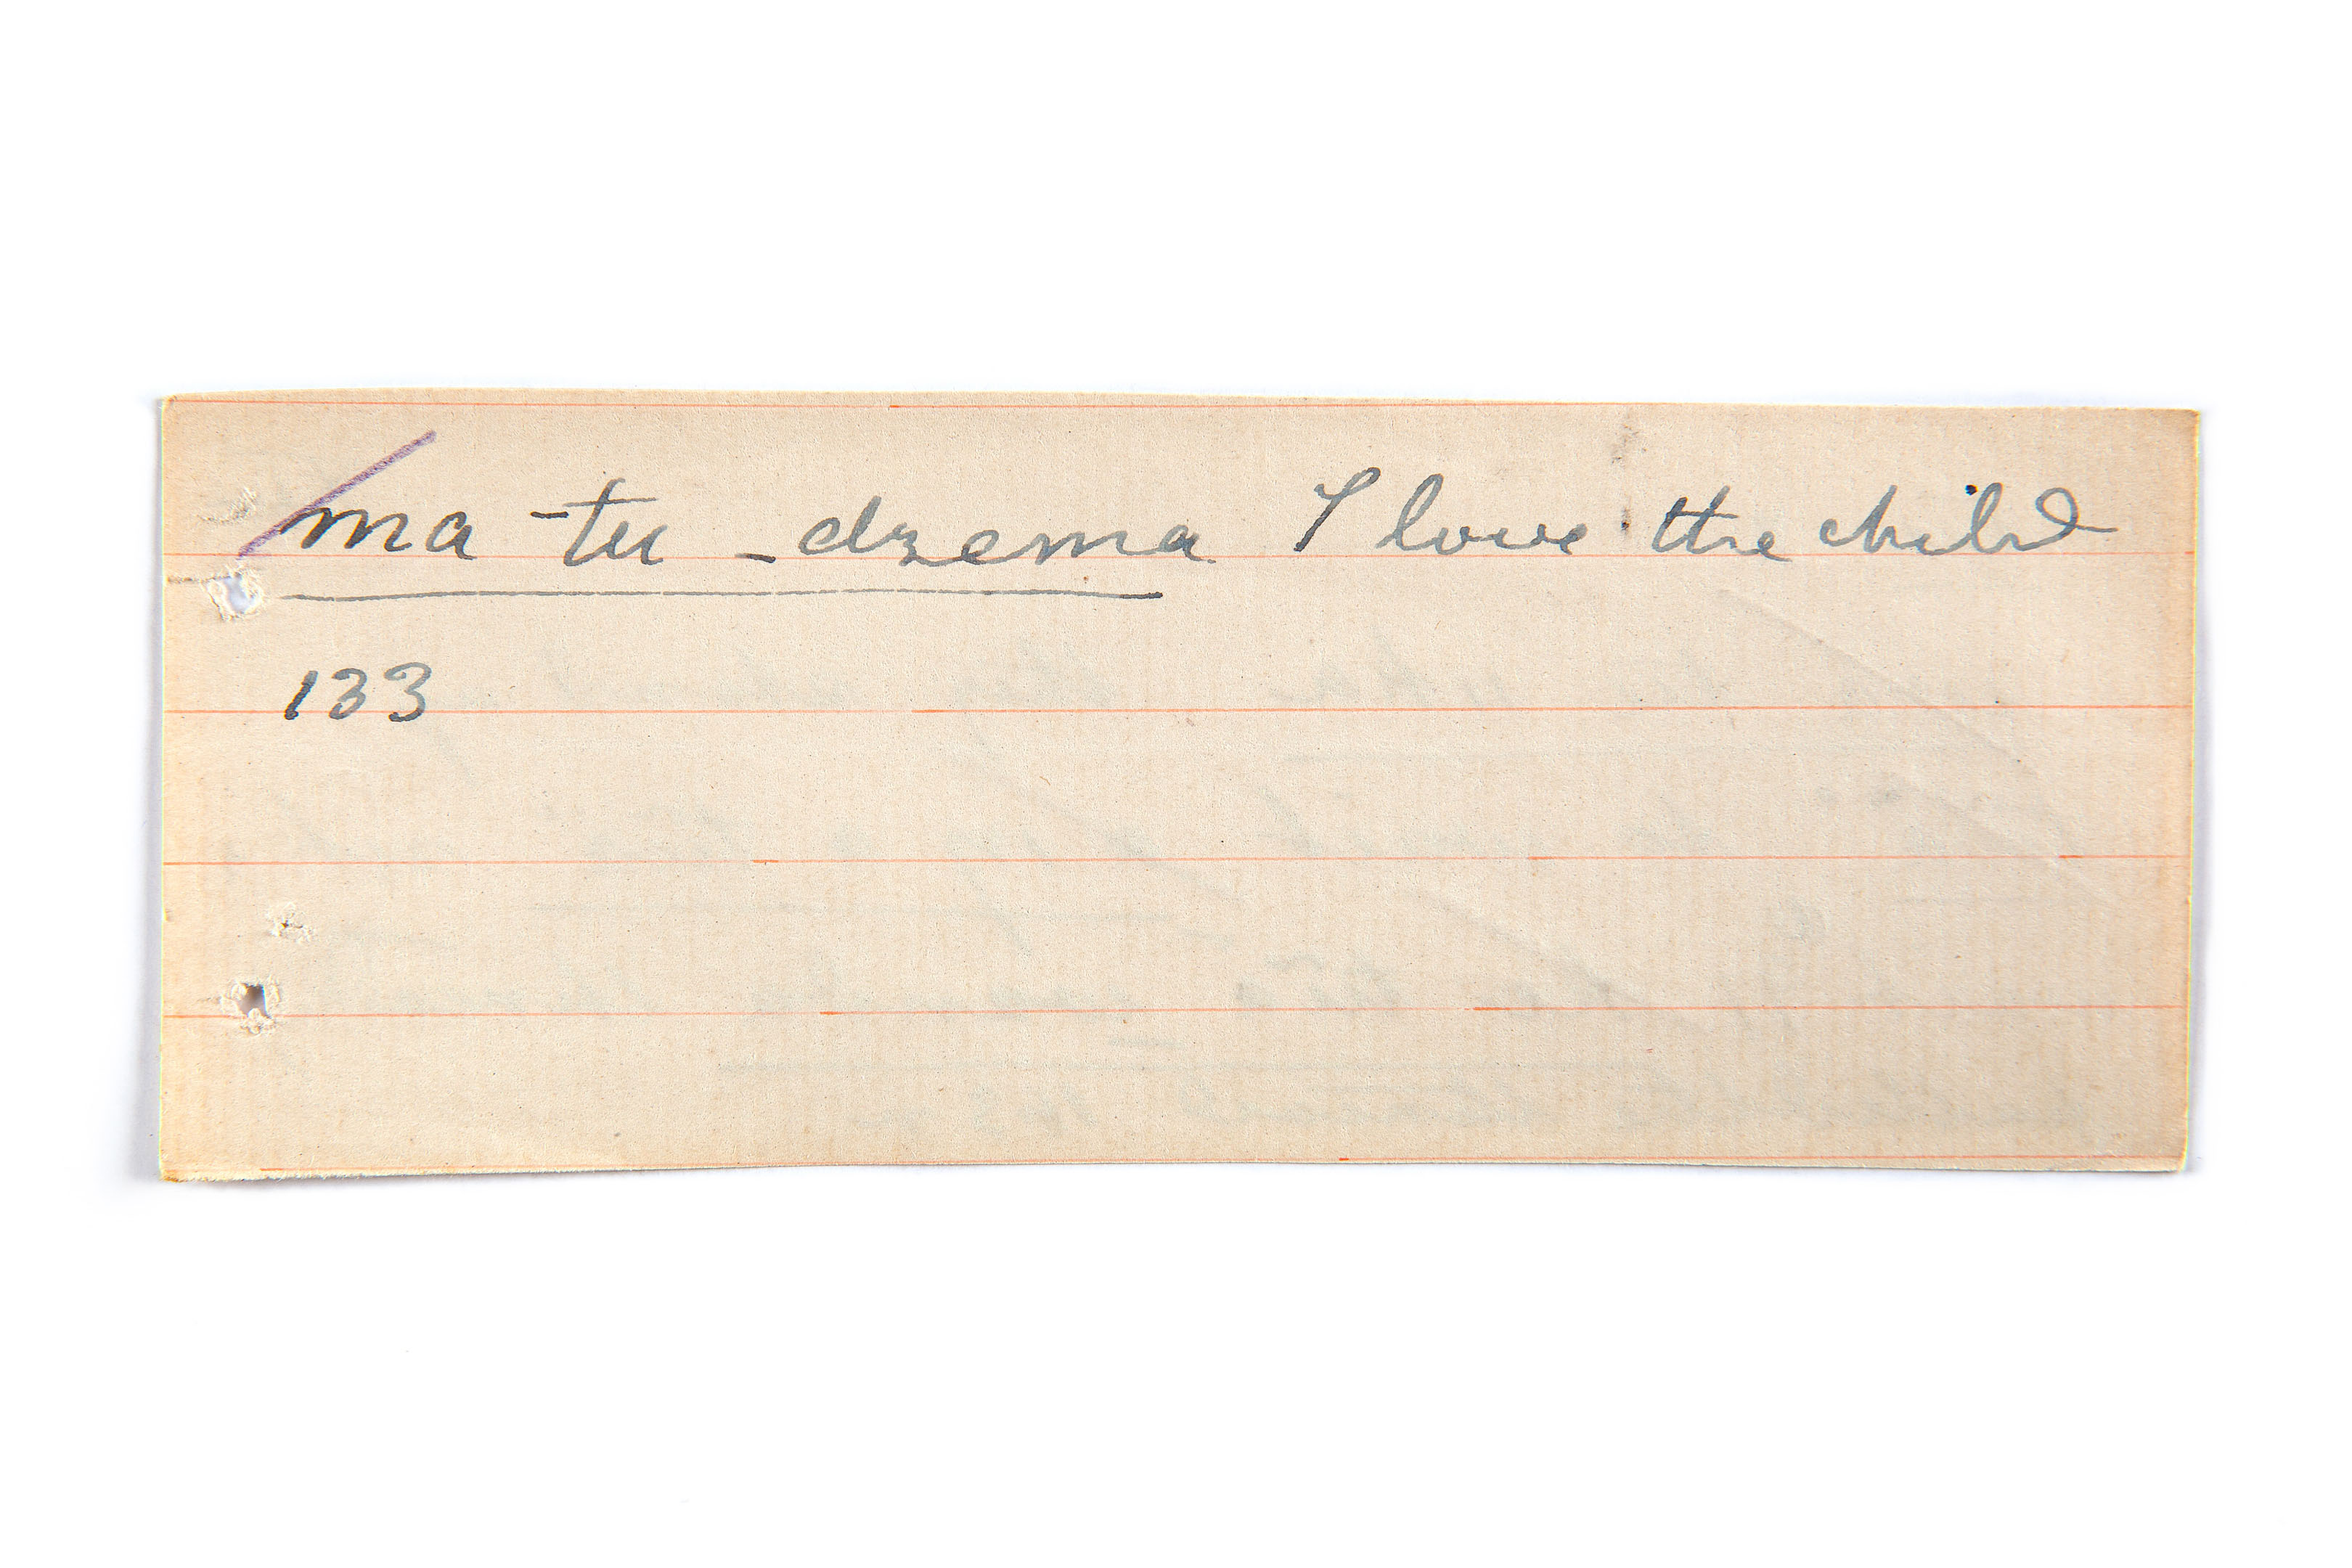 ma -tu -dzema I love the child
133